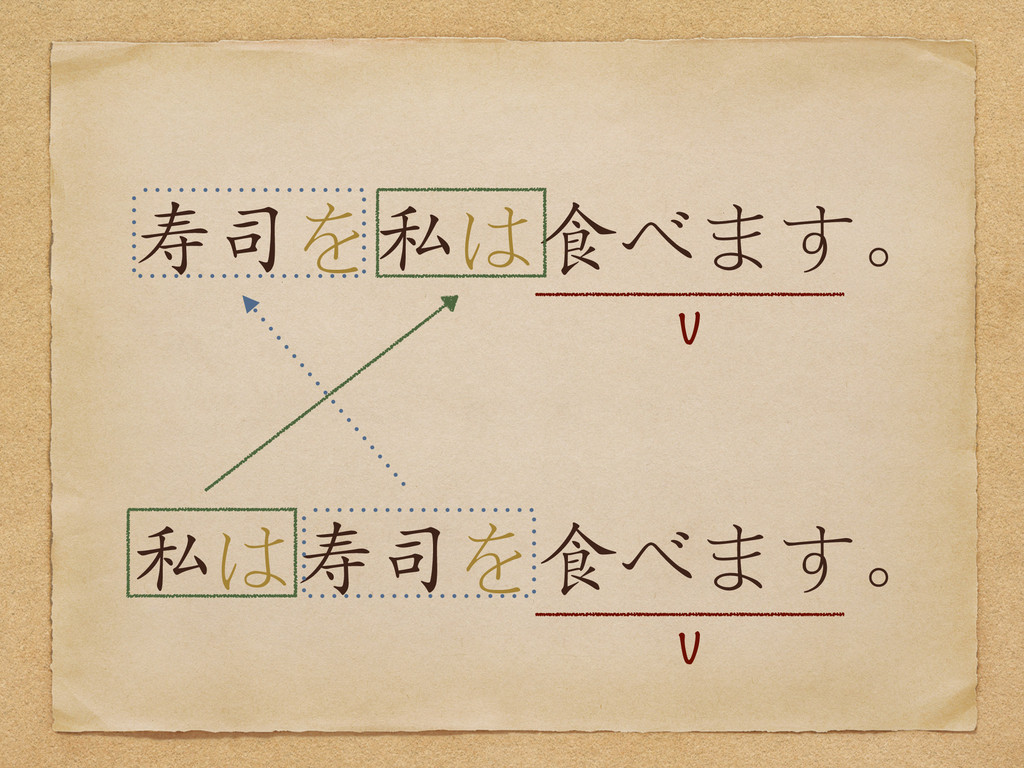 寿司を私は食べます。
V
私は寿司を食べます。
V